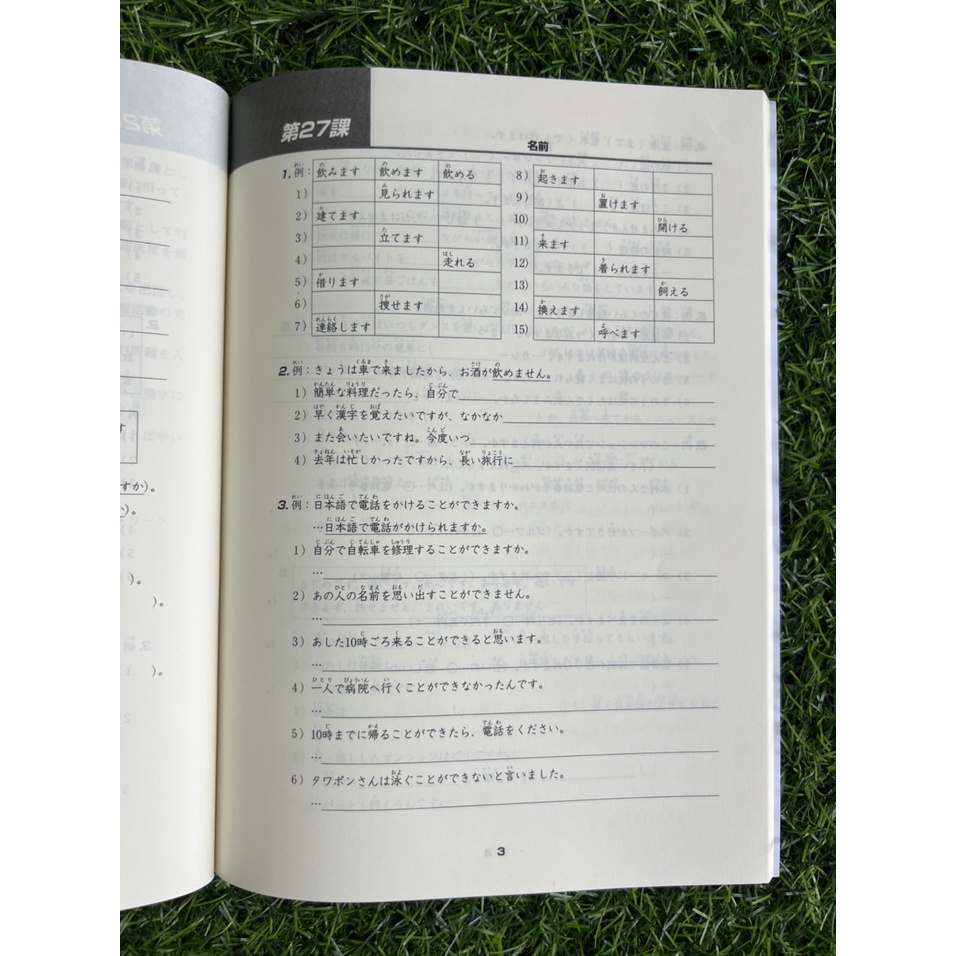 第27課
名前
1. 例：飲みます 飲めます 飲める
1) 見られます
2) 建てます
3) 立てます
4) 走れる
5) 借ります
6) 捜せます
7) 連絡します
8) 起きます
9) 置けます
10) 開ける
11) 来ます
12) 着られます
13) 飼える
14) 換えます
15) 呼べます
2. 例：きょうは車で来ましたから、お酒が飲めません。
1) 簡単な料理だったら、自分で
2) 早く漢字を覚えたいですが、なかなか
3) また会いたいですね。今度いつ
4) 去年は忙しかったですから、長い旅行に
3. 例：日本語で電話をかけることができますか。
…日本語で電話がかけられますか。
1) 自分で自転車を修理することができますか。
…
2) あの人の名前を思い出すことができません。
…
3) あした10時ごろ来ることができると思います。
…
4) 一人で病院へ行くことができなかったんです。
…
5) 10時までに帰ることができたら、電話をください。
…
6) タワポンさんは泳ぐことができないと言いました。
…
3